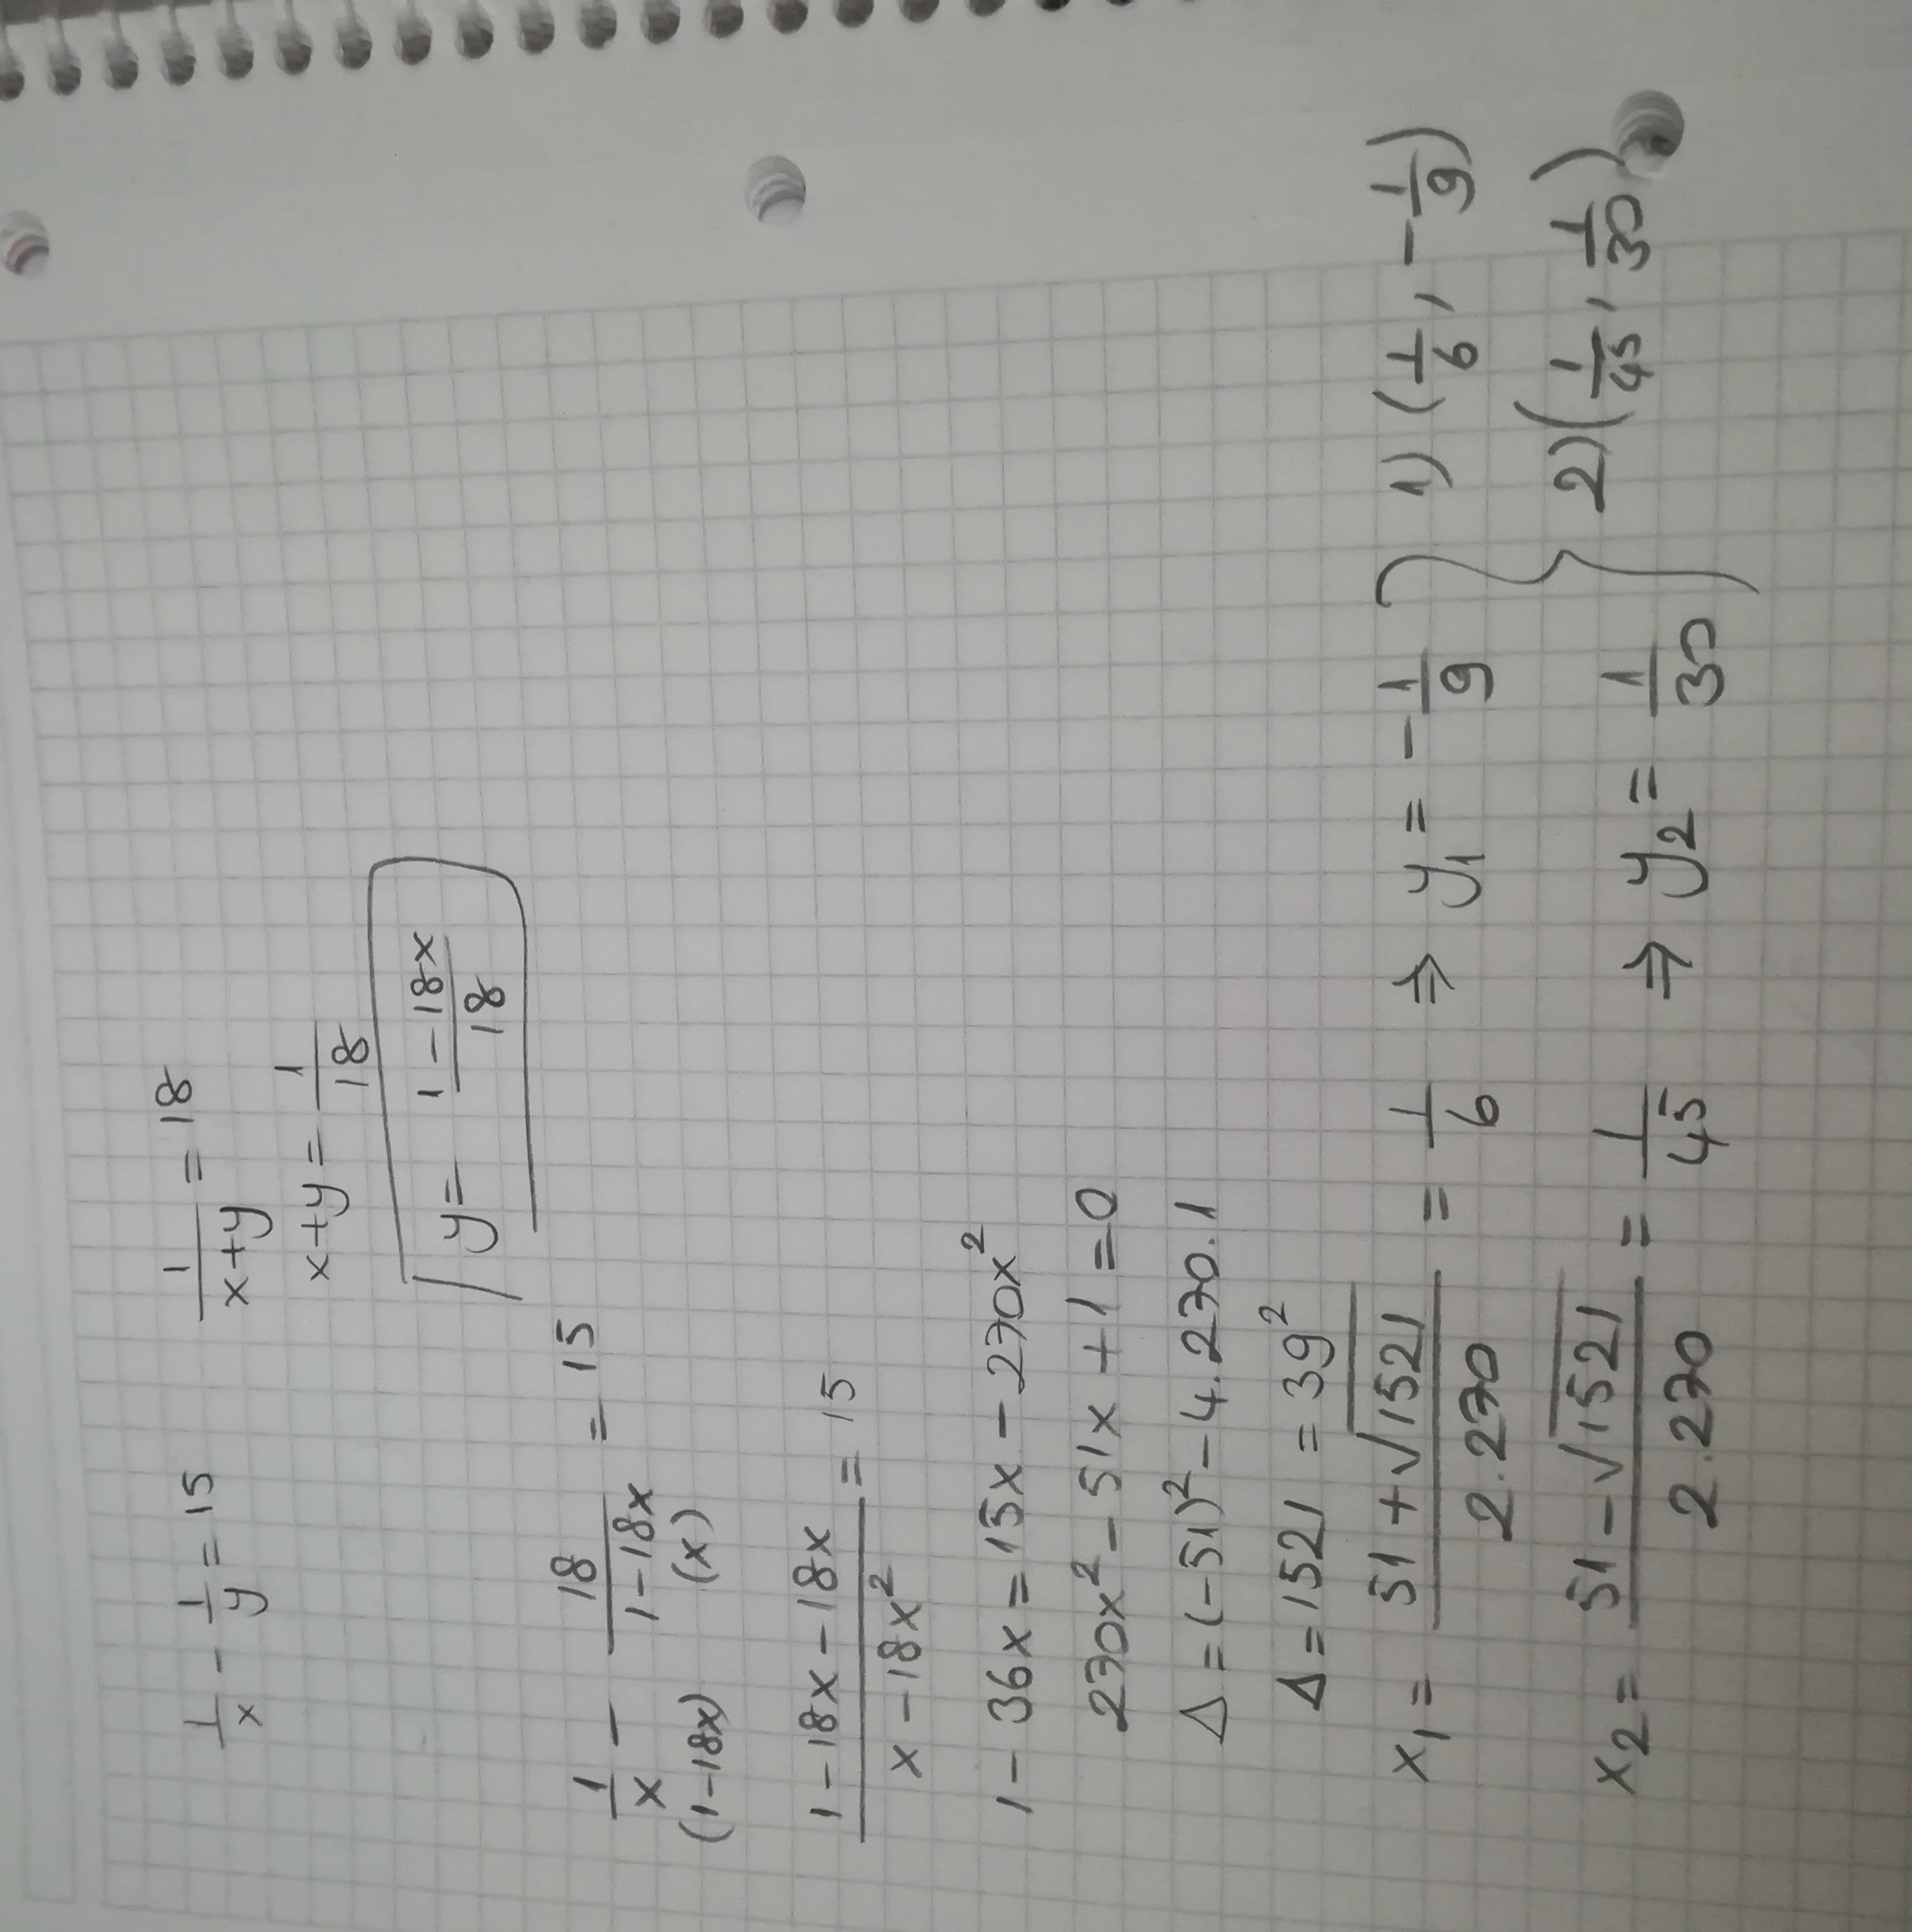 1/x - 1/y = 15    1/(x+y) = 18
x+y = 1/18
y = (1-18x)/18
1/x - 18/(1-18x) = 15
(1-18x) (x)
(1-18x-18x)/(x-18x²) = 15
1-36x = 15x - 270x²
270x² - 51x + 1 = 0
Δ = (-51)² - 4.270.1
Δ = 1521 = 39²
x₁ = (51+√1521)/(2.270) = 1/6 ⇒ y₁ = -1/9 } 1) (1/6, -1/9)
x₂ = (51-√1521)/(2.270) = 1/45 ⇒ y₂ = 1/30 } 2) (1/45, 1/30)